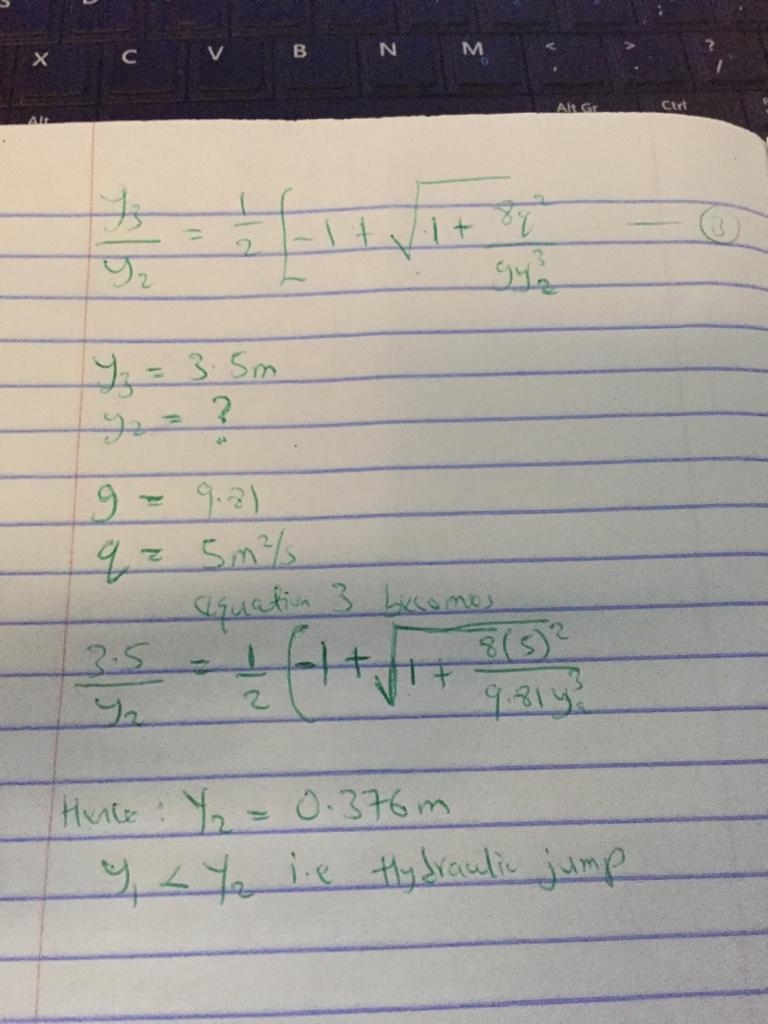 X C V B N M < , > . ? /
Alt Alt Gr Ctrl
y₃/y₂ = 1/2 [-1 + √1 + 8q²/gy₂³ — ③
y₃ = 3.5m
y₂ = ?
g = 9.81
q = 5m²/s
equation 3 becomes
3.5/y₂ = 1/2 [-1 + √1 + 8(5)²/9.81y₂³
Hence: y₂ = 0.376m
y₁ < y₂ i.e Hydraulic jump